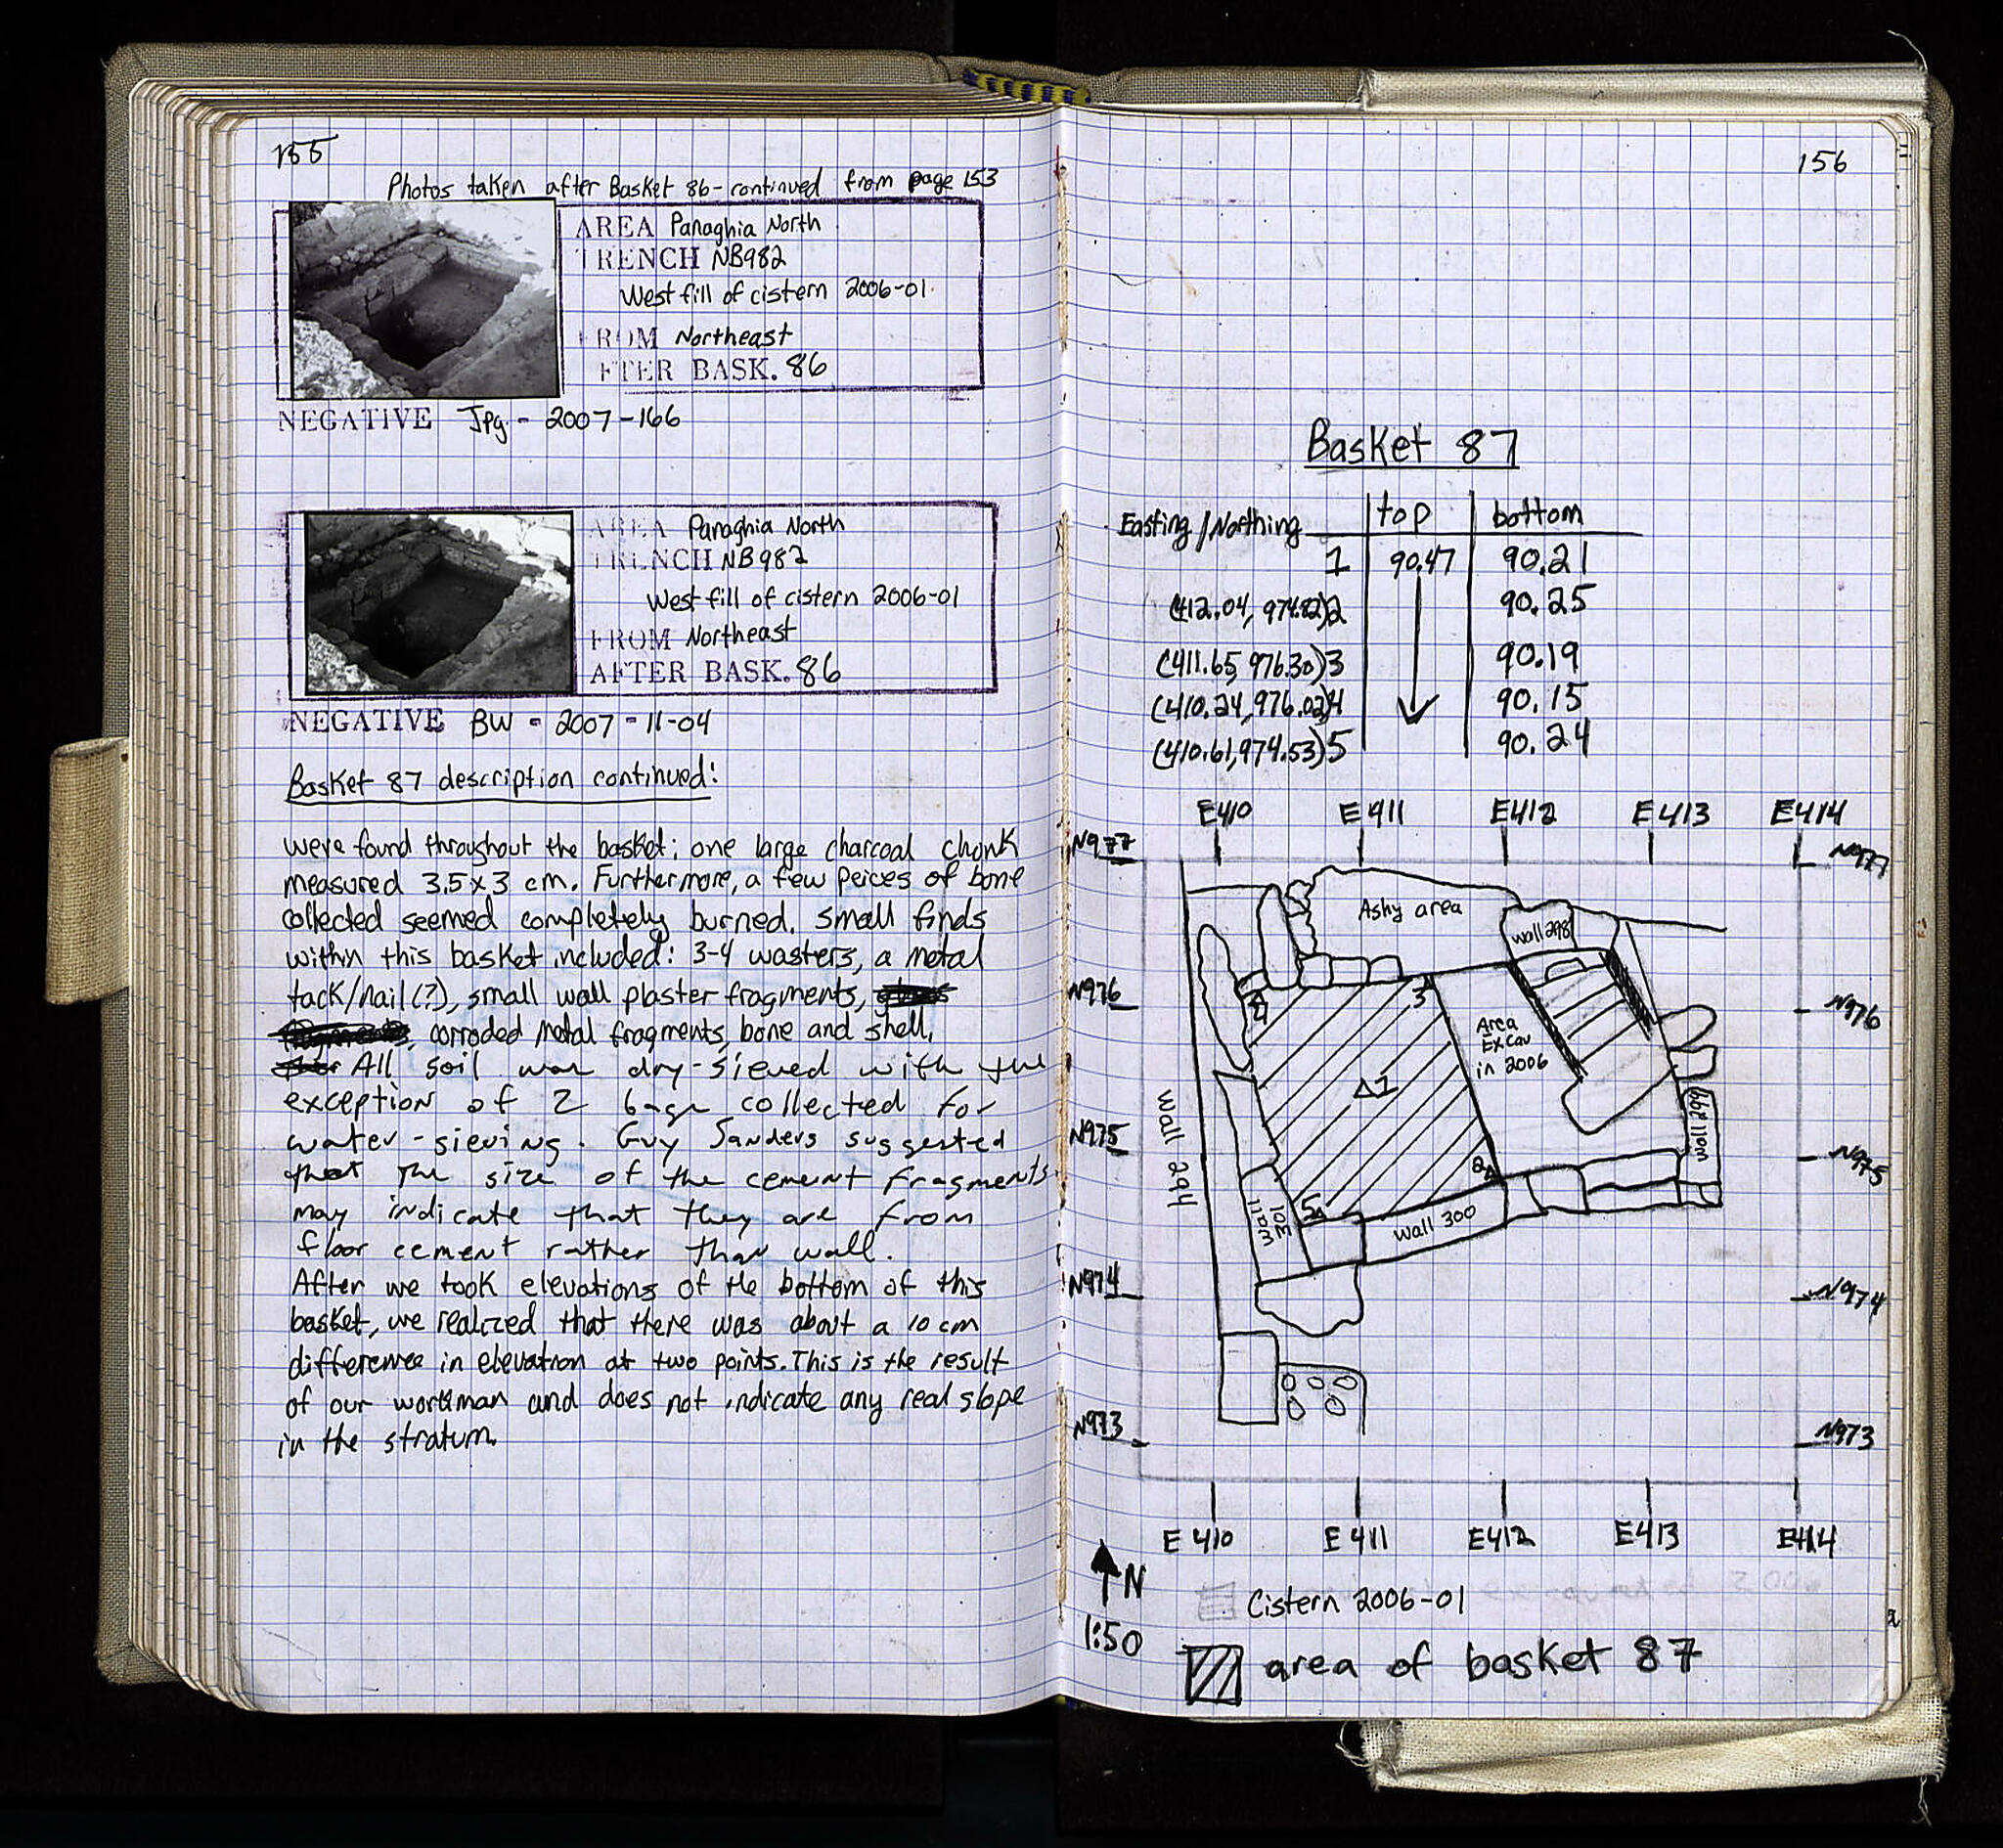 155
Photos taken after Basket 86 - continued from page 153
AREA Panaghia North
TRENCH NB982
West fill of cistern 2006-01
FROM Northeast
FTER BASK. 86
NEGATIVE Jpg - 2007-166
AREA Panaghia North
TRENCH NB982
West fill of cistern 2006-01
FROM Northeast
AFTER BASK. 86
NEGATIVE BW - 2007-11-04
Basket 87 description continued:
were found throughout the basket; one large charcoal chunk
measured 3.5x3 cm. Furthermore, a few peices of bone
collected seemed completely burned. Small finds
within this basket included: 3-4 wasters, a metal
tack/nail(?), small wall plaster fragments,
, corroded metal fragments, bone and shell.
All soil was dry-sieved with the
exception of 2 bags collected for
water-sieving. Guy Sanders suggested
that the size of the cement fragments
may indicate that they are from
floor cement rather than wall.
After we took elevations of the bottom of this
basket, we realized that there was about a 10 cm
difference in elevation at two points. This is the result
of our workman and does not indicate any real slope
in the stratum.
156
Basket 87
Easting/Northing top bottom
1 90.47 90.21
(412.04, 974.82)2 90.25
(411.65, 976.30)3 90.19
(410.24, 976.02)4 90.15
(410.61, 974.53)5 90.24
E410 E411 E412 E413 E414
N977 N977
Ashy area
wall 298
N976 4 3 N976
Area
Excav
in 2006
1
wall 299
N975 2 N975
Wall 294
wall 301
5
Wall 300
N974 N974
N973 N973
E410 E411 E412 E413 E414
N
1:50
Cistern 2006-01
area of basket 87